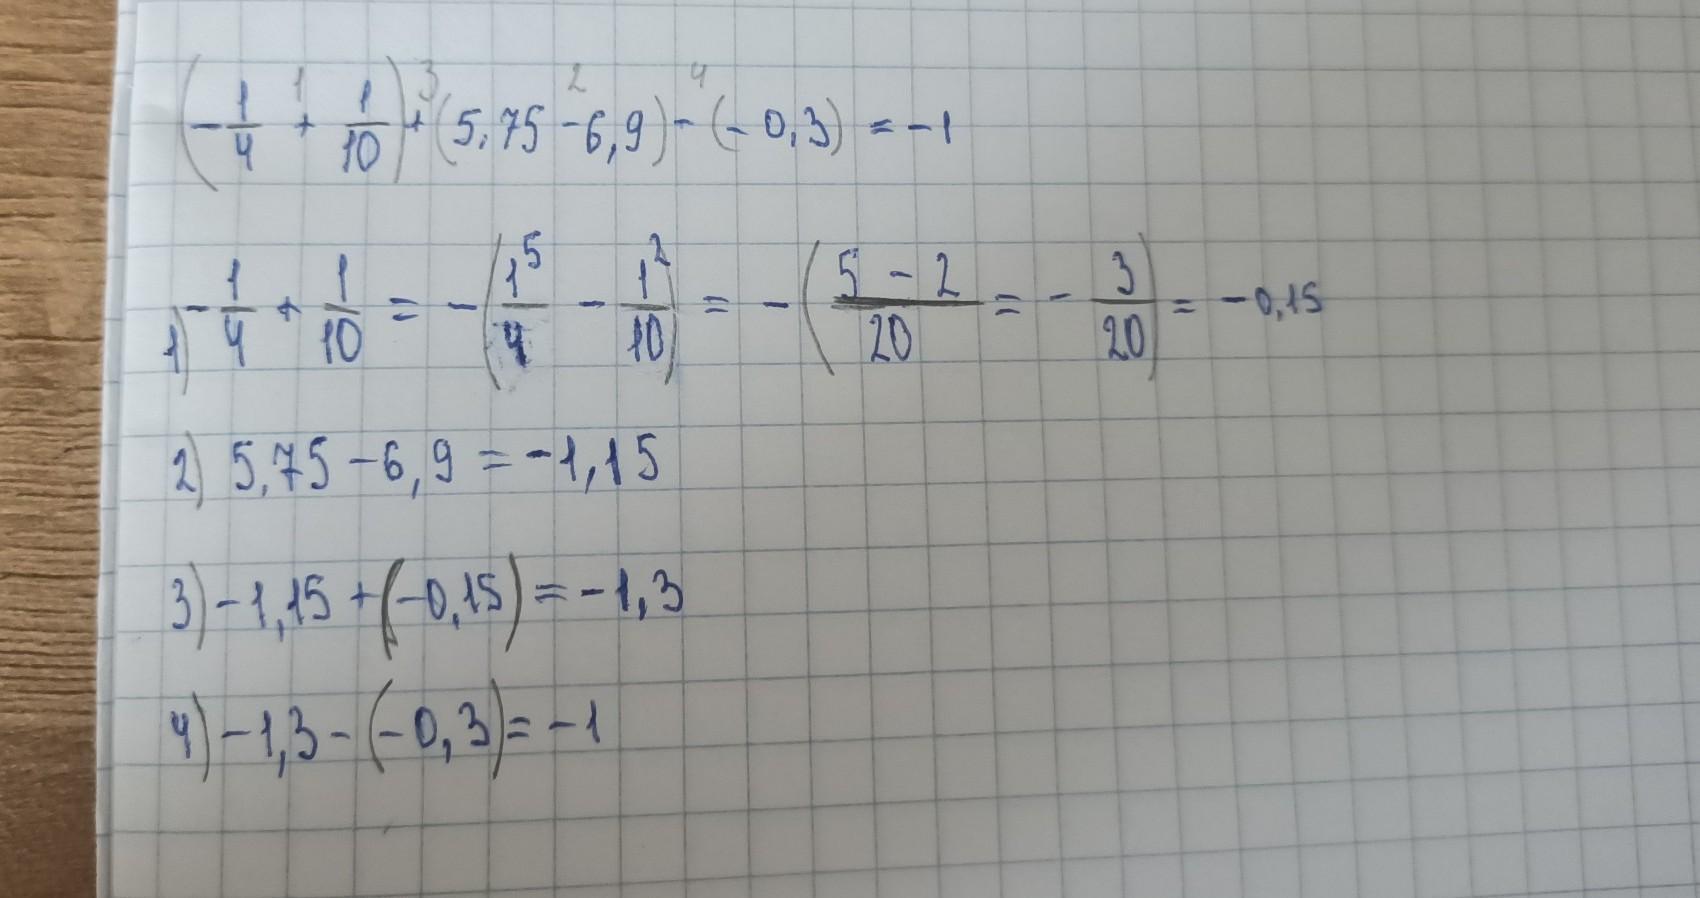 (-1/4 + 1/10) + (5,75 - 6,9) - (-0,3) = -1
1) -1/4 + 1/10 = -(1⁵/4 - 1²/10) = -(5 - 2/20 = -3/20) = -0,15
2) 5,75 - 6,9 = -1,15
3) -1,15 + (-0,15) = -1,3
4) -1,3 - (-0,3) = -1